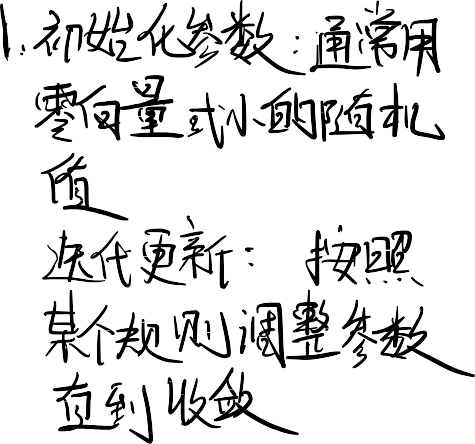 1.初始化参数：通常用
零向量或小的随机
值
迭代更新：按照
某个规则调整参数
直到收敛